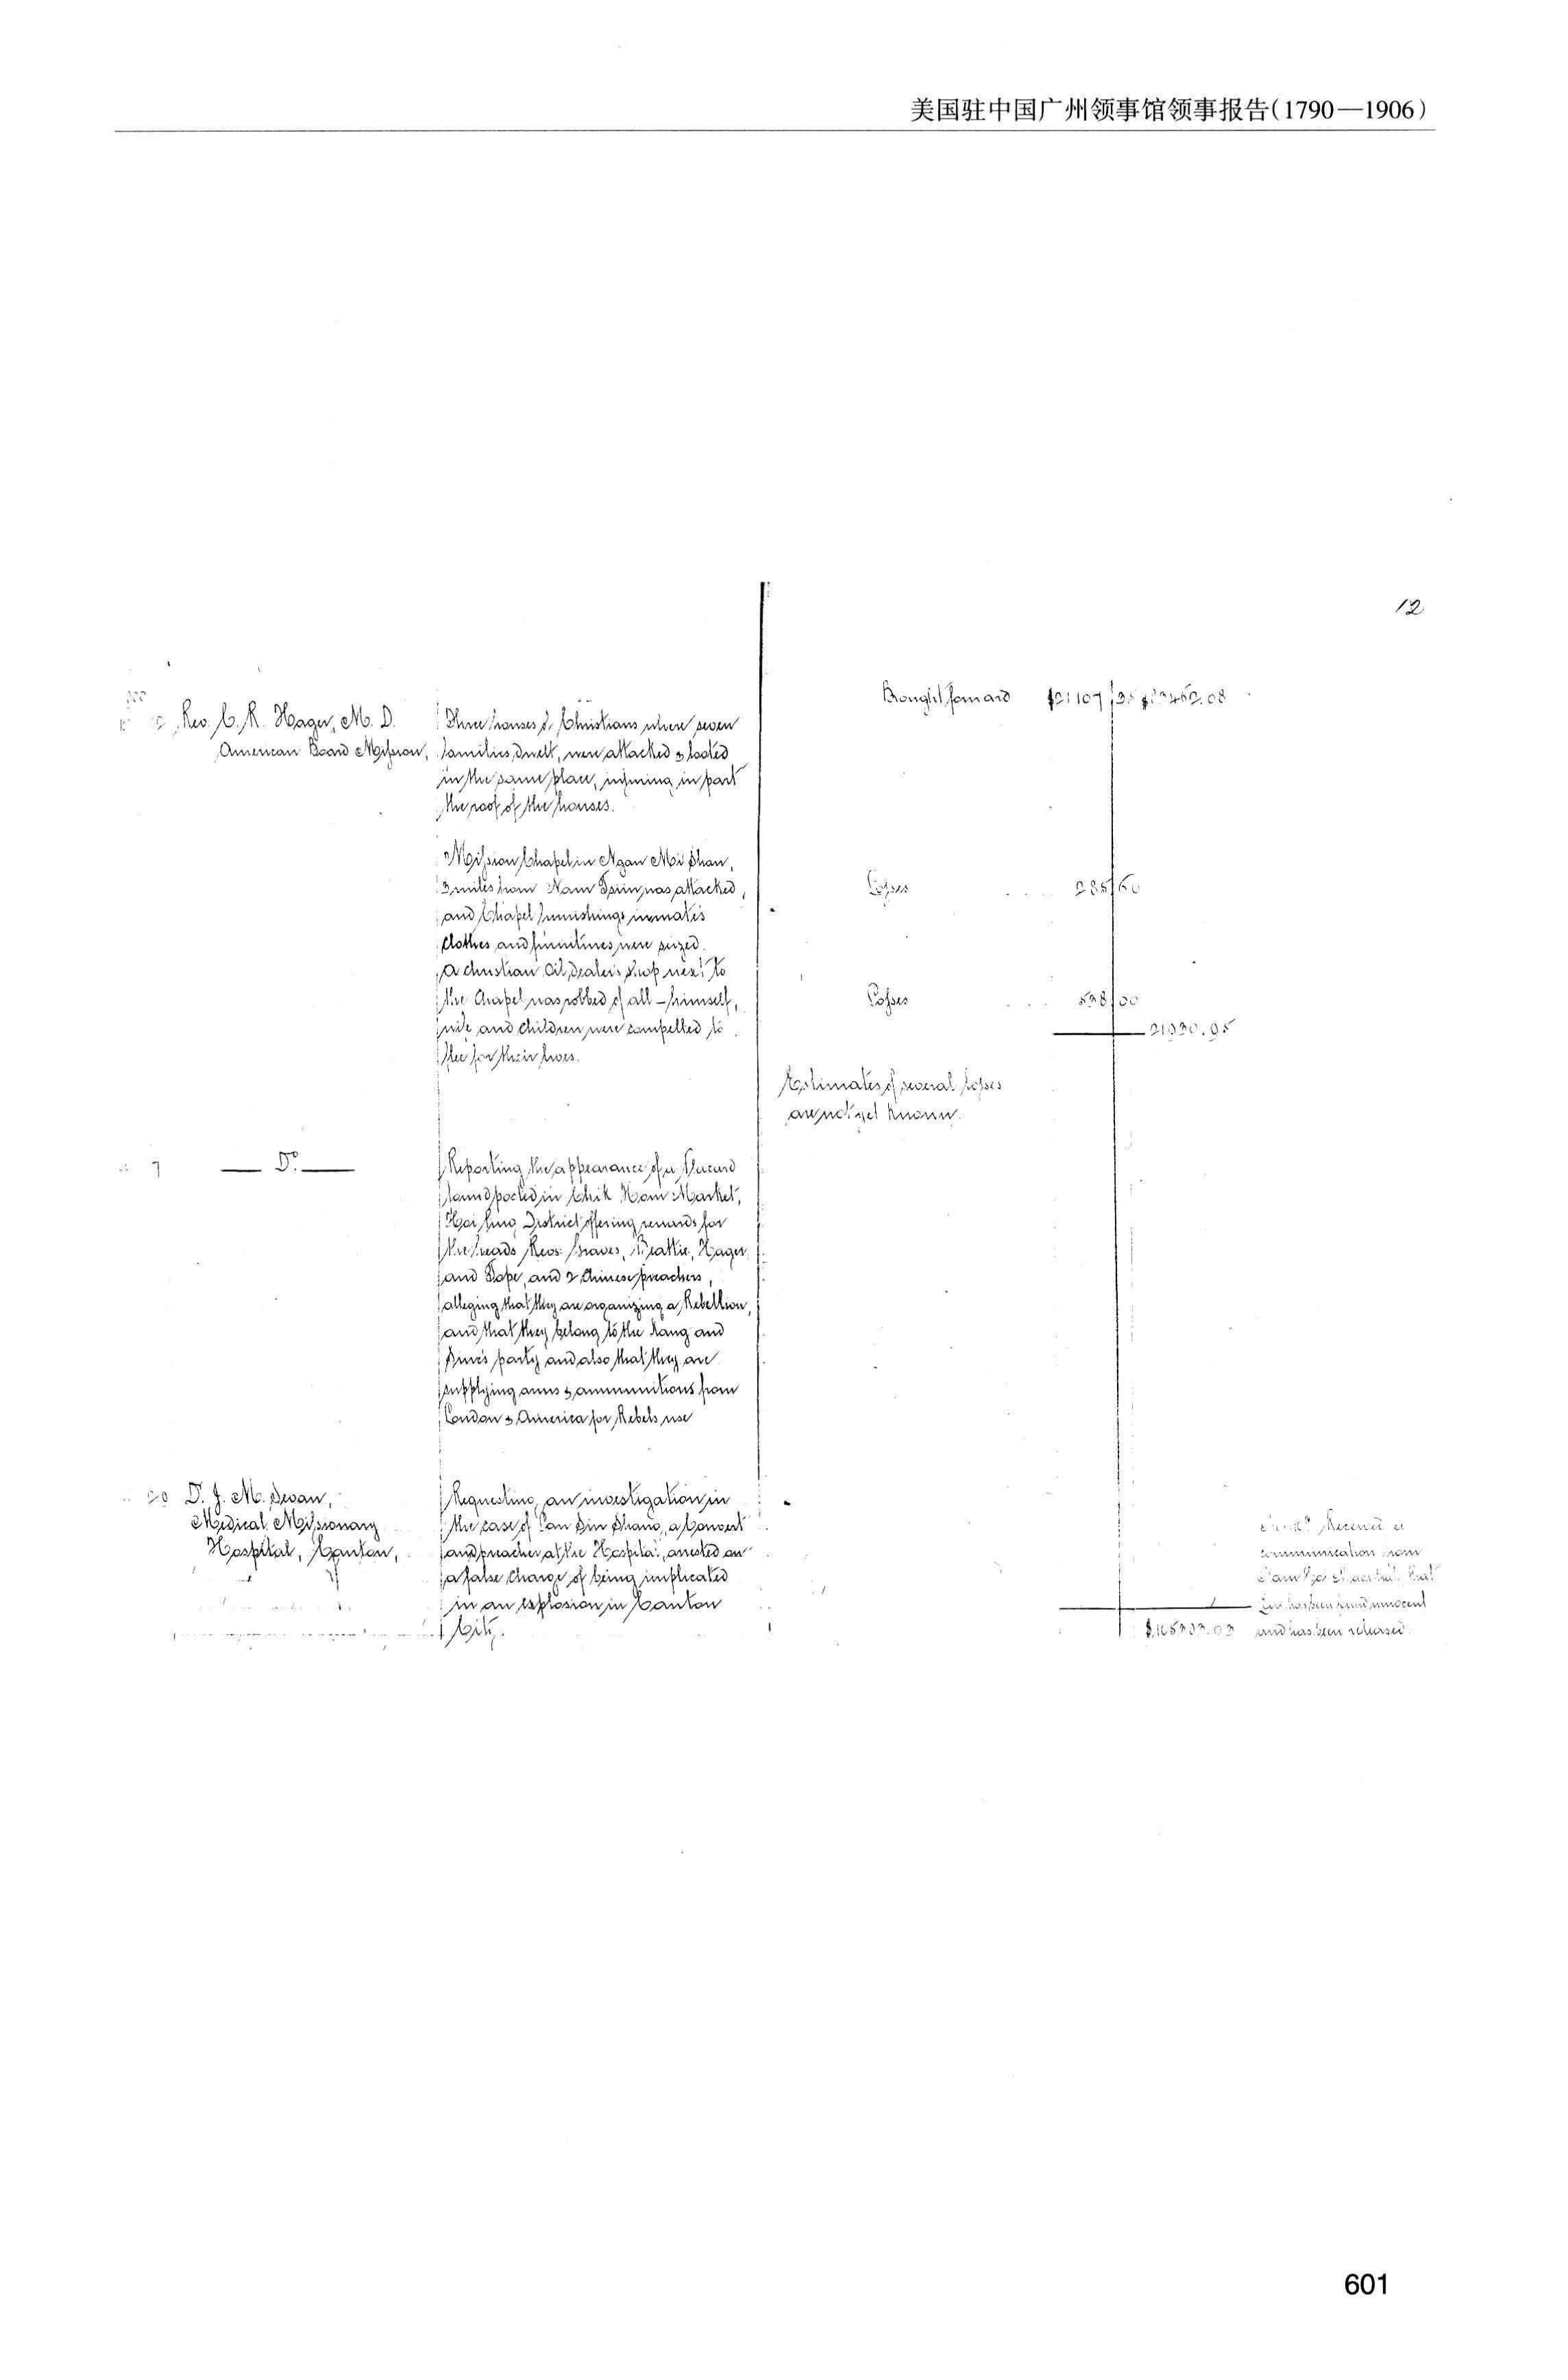 美国驻中国广州领事馆领事报告(1790—1906)
12
Brought forward $21107 35
Rev. C. R. Hager, M. D.
American Board Mission,
Three houses of Christians where seven
families dwelt, were attacked & looted
in the same place, injuring in part
the roof of the houses.
Mission Chapel in Ngan Mi Shan,
3 miles from Nam was attacked,
and Chapel furnishings inmates
clothes and furnitures were seized.
A christian Oil Dealer's shop next to
the Chapel was robbed of all – himself,
wife and children were compelled to
flee for their lives.
Losses 285 60
Losses 538 00
21930.95
Estimates of several losses
are not yet known.
7 — Dº —
Reporting the appearance of a Placard
found posted in Chik Hom Market,
Hoi Ping District offering rewards for
the heads Revs: Graves, Beattie, Hager
and Pope, and 2 Chinese preachers,
alleging that they are organizing a Rebellion,
and that they belong to the Kang and
Sun's party and also that they are
supplying arms & ammunitions from
London & America for Rebels use
20 D. J. M. Swan,
Medical Missionary
Hospital, Canton,
Requesting an investigation in
the case of Sin Shang, a Convert
and preacher at the Hospital, arrested on
a false charge of being implicated
in an explosion in Canton
City.
Received a
communication from
that
has been found innocent
and has been released.
601